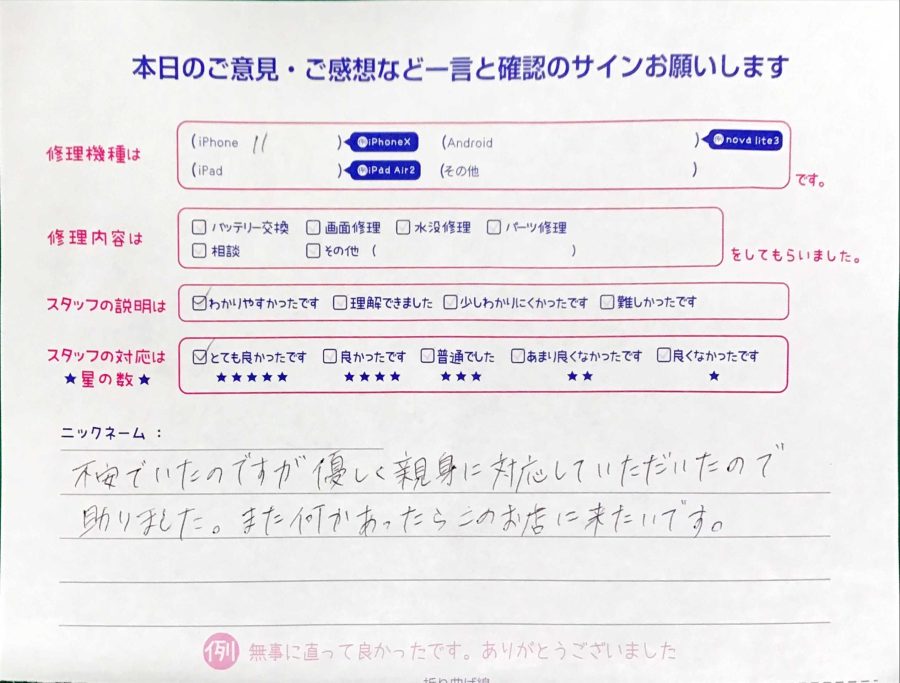 本日のご意見・ご感想など一言と確認のサインお願いします
修理機種は
(iPhone 11 ) iPhoneX (Android ) nova lite3
(iPad ) iPad Air2 (その他 ) です。
修理内容は
バッテリー交換 画面修理 水没修理 パーツ修理
相談 その他 ( ) をしてもらいました。
スタッフの説明は わかりやすかったです 理解できました 少しわかりにくかったです 難しかったです
スタッフの対応は とても良かったです 良かったです 普通でした あまり良くなかったです 良くなかったです
★星の数★ ★★★★★ ★★★★ ★★★ ★★ ★
ニックネーム：
不安でいたのですが優しく親身に対応していただいたので
助りました。また何かあったらこのお店に来たいです。
例 無事に直って良かったです。ありがとうございました